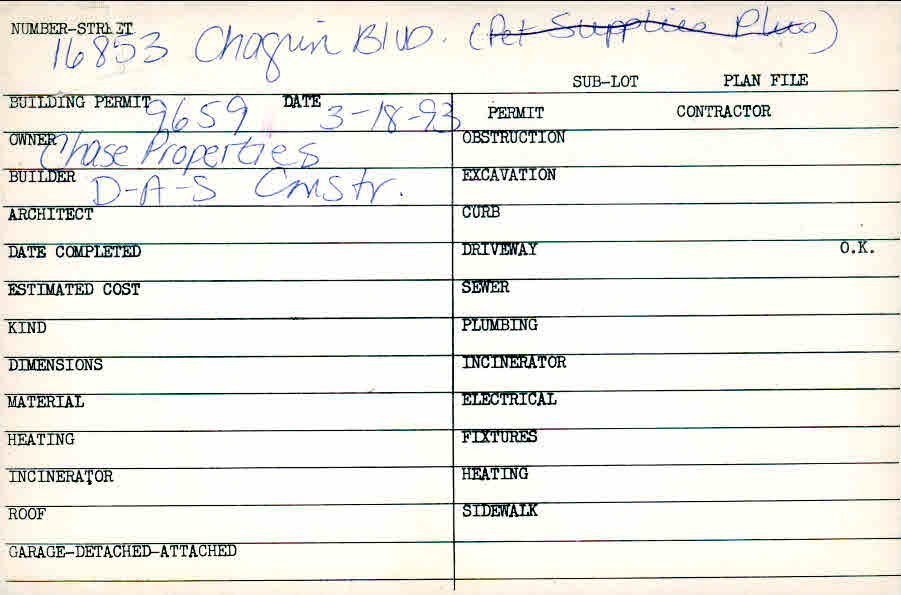 NUMBER-STREET
16853 Chagrin BLVD. (Pet Supplies Plus)
SUB-LOT PLAN FILE
BUILDING PERMIT 9659 DATE 3-18-93
PERMIT CONTRACTOR
OWNER Chase Properties
OBSTRUCTION
BUILDER D-A-S Constr.
EXCAVATION
ARCHITECT
CURB
DATE COMPLETED
DRIVEWAY O.K.
ESTIMATED COST
SEWER
KIND
PLUMBING
DIMENSIONS
INCINERATOR
MATERIAL
ELECTRICAL
HEATING
FIXTURES
INCINERATOR
HEATING
ROOF
SIDEWALK
GARAGE-DETACHED-ATTACHED